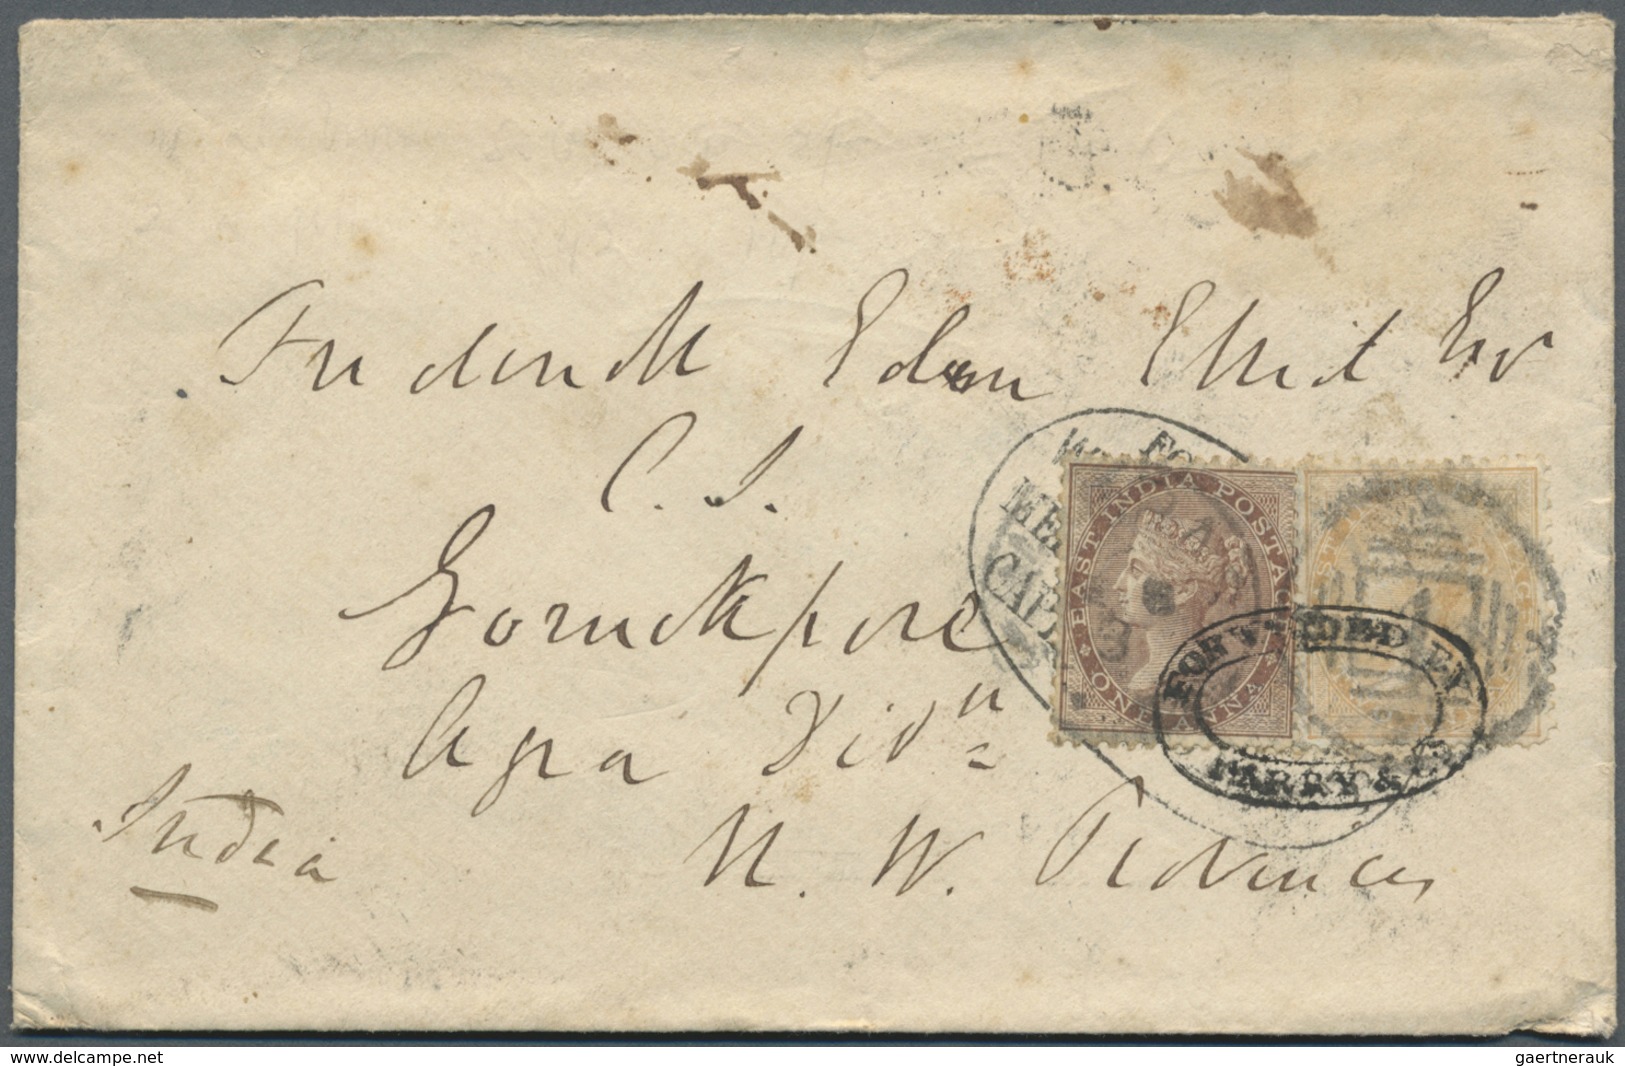 Frederick Eden Elliot Esqr
C. S.
Goruckpore
Agra Divn
N. W. Provinces
India
EAST INDIA POSTAGE
ONE ANNA
FORWARDED BY
PARRY & Co
www.delcampe.net
gaertnerauk